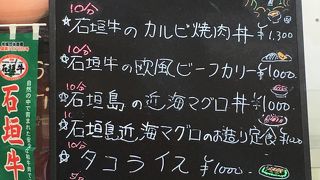 10分
☆石垣牛のカルビ焼肉丼 ¥1,300
10分
☆石垣牛の欧風ビーフカリー ¥1000.
10分
☆石垣島の近海マグロ丼 ¥1000.
10分
☆石垣島近海マグロのお造り定食
☆タコライス ¥1000.
石垣牛
自然の中で育まれた